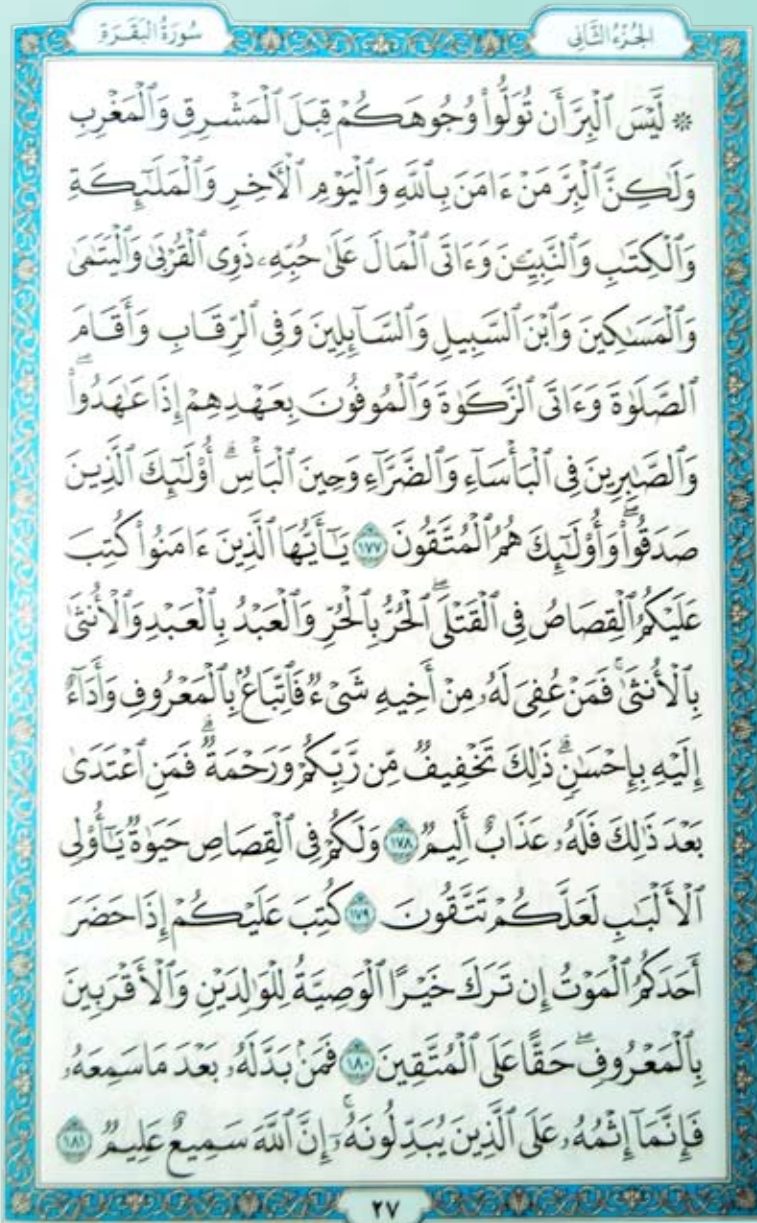 الجُزْءُ الثَّانِي
سُورَةُ البَقَرَةِ
۞ لَّيْسَ ٱلْبِرَّ أَن تُوَلُّوا۟ وُجُوهَكُمْ قِبَلَ ٱلْمَشْرِقِ وَٱلْمَغْرِبِ
وَلَٰكِنَّ ٱلْبِرَّ مَنْ ءَامَنَ بِٱللَّهِ وَٱلْيَوْمِ ٱلْأَخِرِ وَٱلْمَلَٰٓئِكَةِ
وَٱلْكِتَٰبِ وَٱلنَّبِيِّـۧنَ وَءَاتَى ٱلْمَالَ عَلَىٰ حُبِّهِۦ ذَوِى ٱلْقُرْبَىٰ وَٱلْيَتَٰمَىٰ
وَٱلْمَسَٰكِينَ وَٱبْنَ ٱلسَّبِيلِ وَٱلسَّآئِلِينَ وَفِى ٱلرِّقَابِ وَأَقَامَ
ٱلصَّلَوٰةَ وَءَاتَى ٱلزَّكَوٰةَ وَٱلْمُوفُونَ بِعَهْدِهِمْ إِذَا عَٰهَدُوا۟ۖ
وَٱلصَّٰبِرِينَ فِى ٱلْبَأْسَآءِ وَٱلضَّرَّآءِ وَحِينَ ٱلْبَأْسِۗ أُو۟لَٰٓئِكَ ٱلَّذِينَ
صَدَقُوا۟ۖ وَأُو۟لَٰٓئِكَ هُمُ ٱلْمُتَّقُونَ ١٧٧ يَٰٓأَيُّهَا ٱلَّذِينَ ءَامَنُوا۟ كُتِبَ
عَلَيْكُمُ ٱلْقِصَاصُ فِى ٱلْقَتْلَىۖ ٱلْحُرُّ بِٱلْحُرِّ وَٱلْعَبْدُ بِٱلْعَبْدِ وَٱلْأُنثَىٰ
بِٱلْأُنثَىٰۚ فَمَنْ عُفِىَ لَهُۥ مِنْ أَخِيهِ شَىْءٌ فَٱتِّبَاعٌۢ بِٱلْمَعْرُوفِ وَأَدَآءٌ
إِلَيْهِ بِإِحْسَٰنٍۗ ذَٰلِكَ تَخْفِيفٌ مِّن رَّبِّكُمْ وَرَحْمَةٌۗ فَمَنِ ٱعْتَدَىٰ
بَعْدَ ذَٰلِكَ فَلَهُۥ عَذَابٌ أَلِيمٌ ١٧٨ وَلَكُمْ فِى ٱلْقِصَاصِ حَيَوٰةٌ يَٰٓأُو۟لِى
ٱلْأَلْبَٰبِ لَعَلَّكُمْ تَتَّقُونَ ١٧٩ كُتِبَ عَلَيْكُمْ إِذَا حَضَرَ
أَحَدَكُمُ ٱلْمَوْتُ إِن تَرَكَ خَيْرًا ٱلْوَصِيَّةُ لِلْوَٰلِدَيْنِ وَٱلْأَقْرَبِينَ
بِٱلْمَعْرُوفِۖ حَقًّا عَلَى ٱلْمُتَّقِينَ ١٨٠ فَمَنۢ بَدَّلَهُۥ بَعْدَ مَا سَمِعَهُۥ
فَإِنَّمَآ إِثْمُهُۥ عَلَى ٱلَّذِينَ يُبَدِّلُونَهُۥٓۚ إِنَّ ٱللَّهَ سَمِيعٌ عَلِيمٌ ١٨١
٢٧